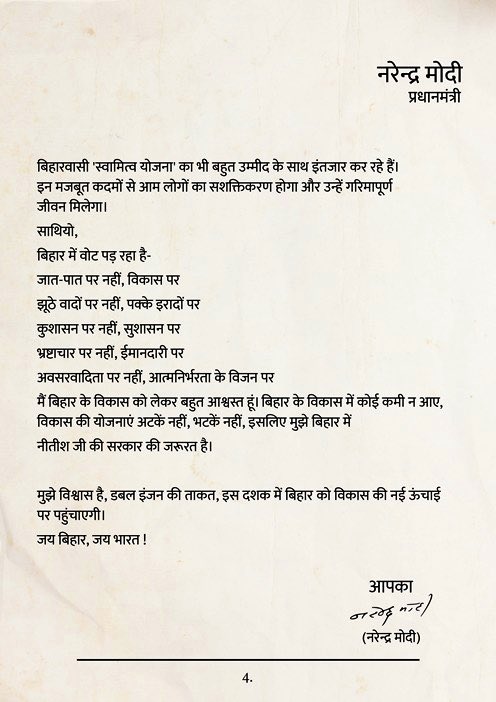 नरेन्द्र मोदी
प्रधानमंत्री
बिहारवासी 'स्वामित्व योजना' का भी बहुत उम्मीद के साथ इंतजार कर रहे हैं।
इन मजबूत कदमों से आम लोगों का सशक्तिकरण होगा और उन्हें गरिमापूर्ण
जीवन मिलेगा।
साथियो,
बिहार में वोट पड़ रहा है-
जात-पात पर नहीं, विकास पर
झूठे वादों पर नहीं, पक्के इरादों पर
कुशासन पर नहीं, सुशासन पर
भ्रष्टाचार पर नहीं, ईमानदारी पर
अवसरवादिता पर नहीं, आत्मनिर्भरता के विजन पर
मैं बिहार के विकास को लेकर बहुत आश्वस्त हूं। बिहार के विकास में कोई कमी न आए,
विकास की योजनाएं अटकें नहीं, भटकें नहीं, इसलिए मुझे बिहार में
नीतीश जी की सरकार की जरूरत है।
मुझे विश्वास है, डबल इंजन की ताकत, इस दशक में बिहार को विकास की नई ऊंचाई
पर पहुंचाएगी।
जय बिहार, जय भारत !
आपका
नरेन्द्र मोदी
(नरेन्द्र मोदी)
4.